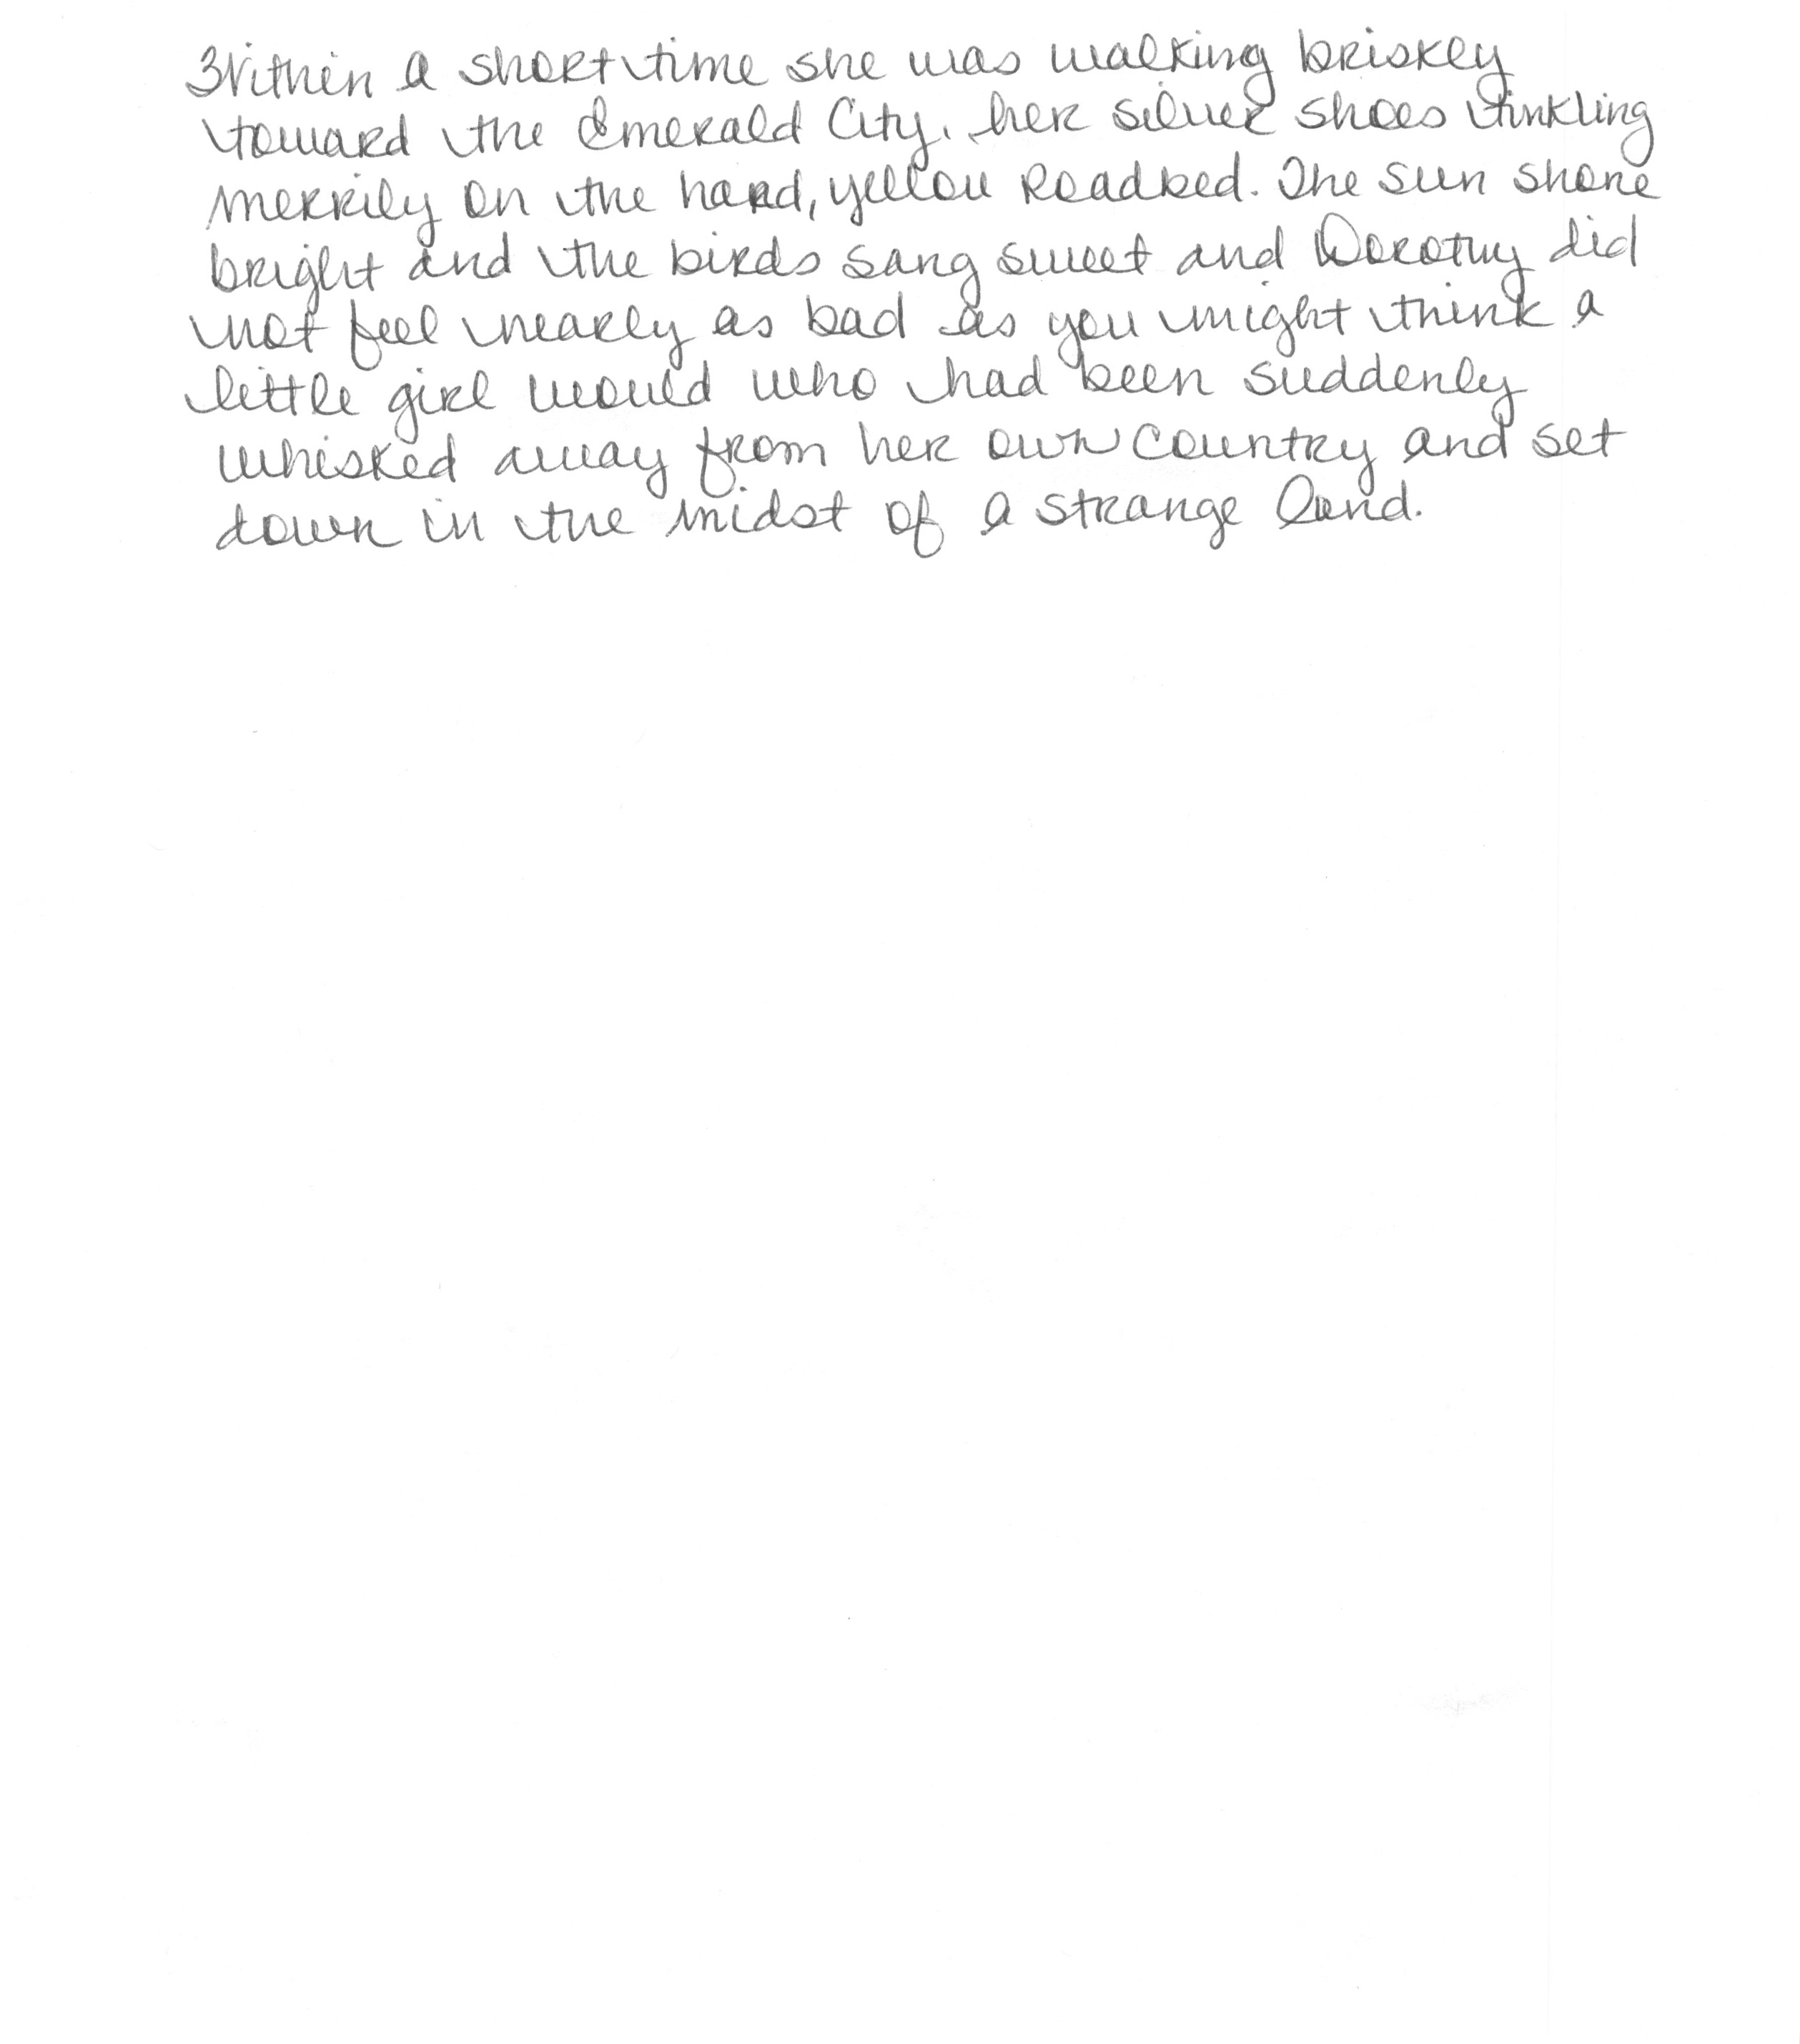 Within a short time she was walking briskly
toward the Emerald City, her silver shoes tinkling
merrily on the hard, yellow roadbed. The sun shone
bright and the birds sang sweet and Dorothy did
not feel nearly as bad as you might think a
little girl would who had been suddenly
whisked away from her own country and set
down in the midst of a strange land.